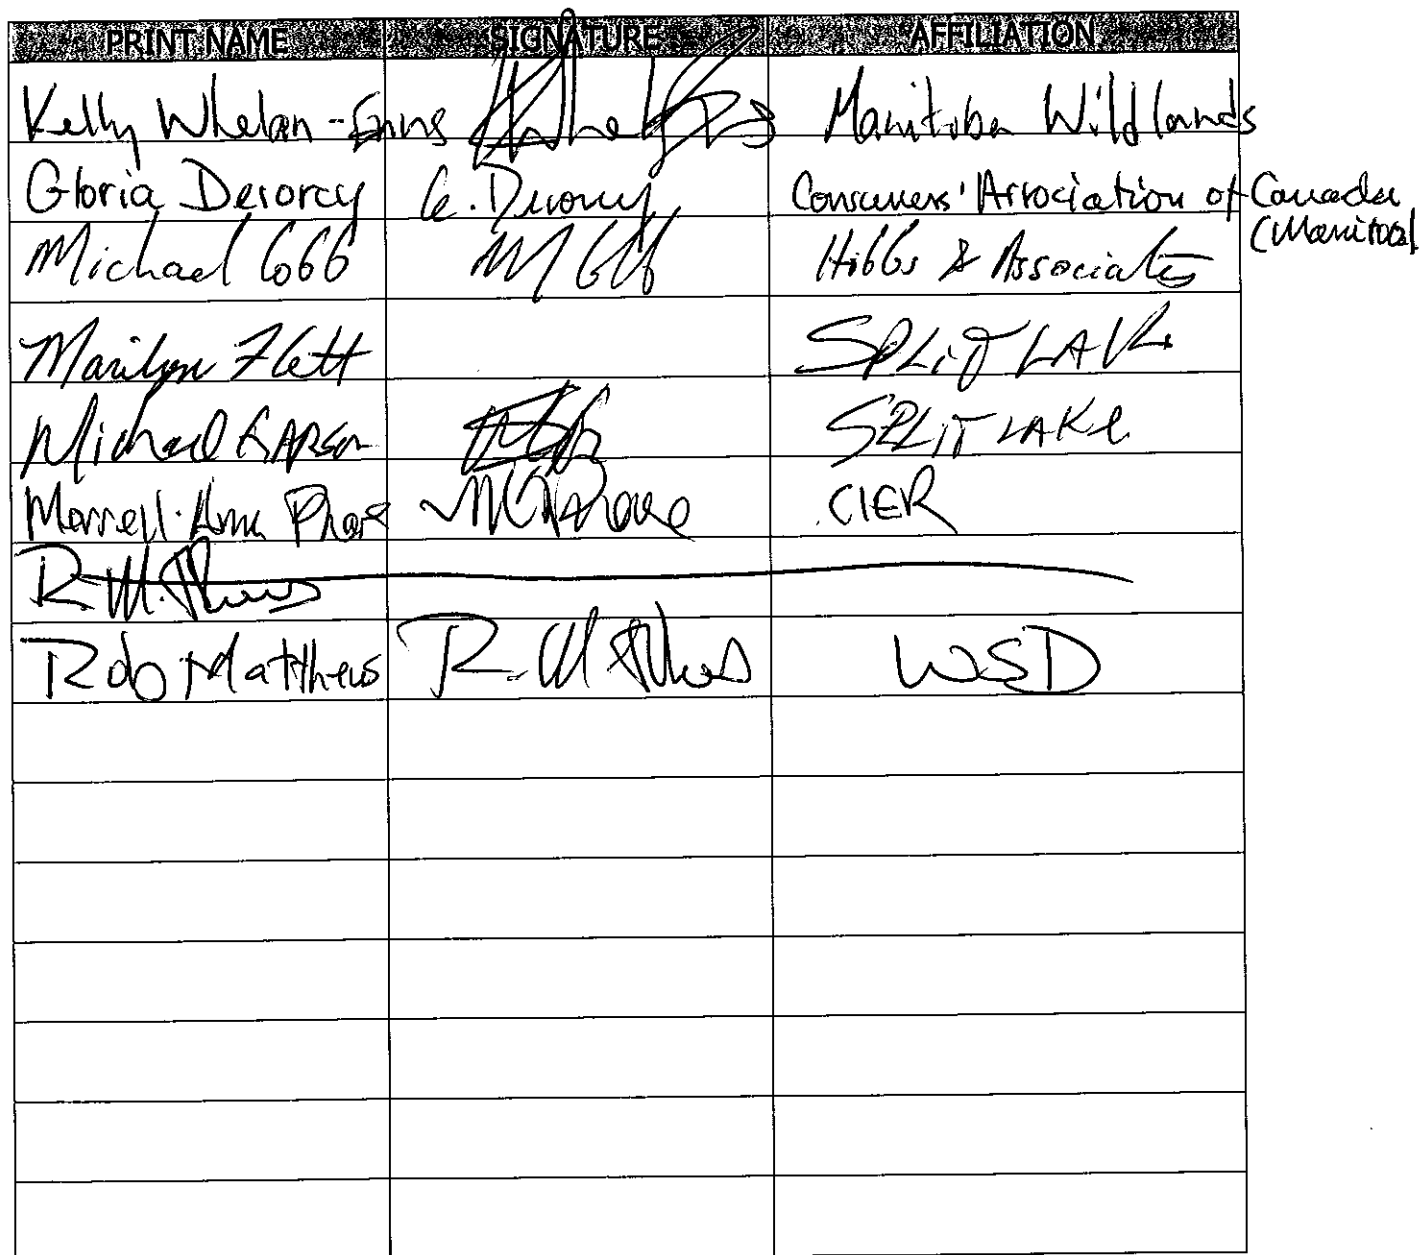 PRINT NAME SIGNATURE AFFILIATION
Kelly Whelan-Enns Manitoba Wildlands
Gloria Desorcy G. Desorcy Consumers' Association of Canada
(Manitoba)
Michael Cobb M Cobb Hibbs & Associates
Marilyn Flett SPLIT LAKE
Michael SPLIT LAKE
Merrell-Ann Phare CIER
R. Matthews
Rob Matthews R. Matthews WSD